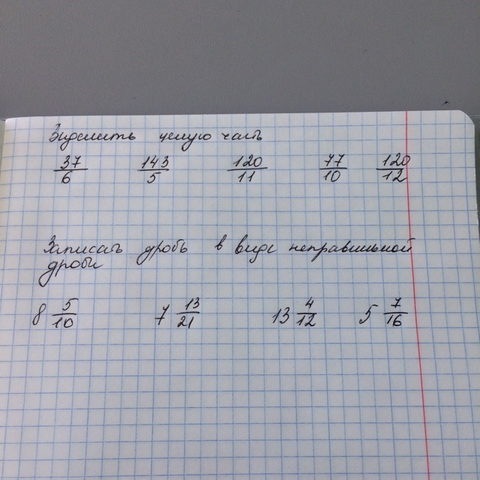 Выделить целую часть
37/6 143/5 120/11 77/10 120/12
Записать дробь в виде неправильной
дроби
8 5/10 7 13/21 13 4/12 5 7/16